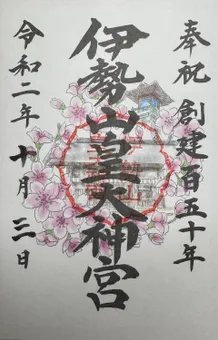 奉祝 創建百五十年
伊勢山皇大神宮
令和二年 十月 三日